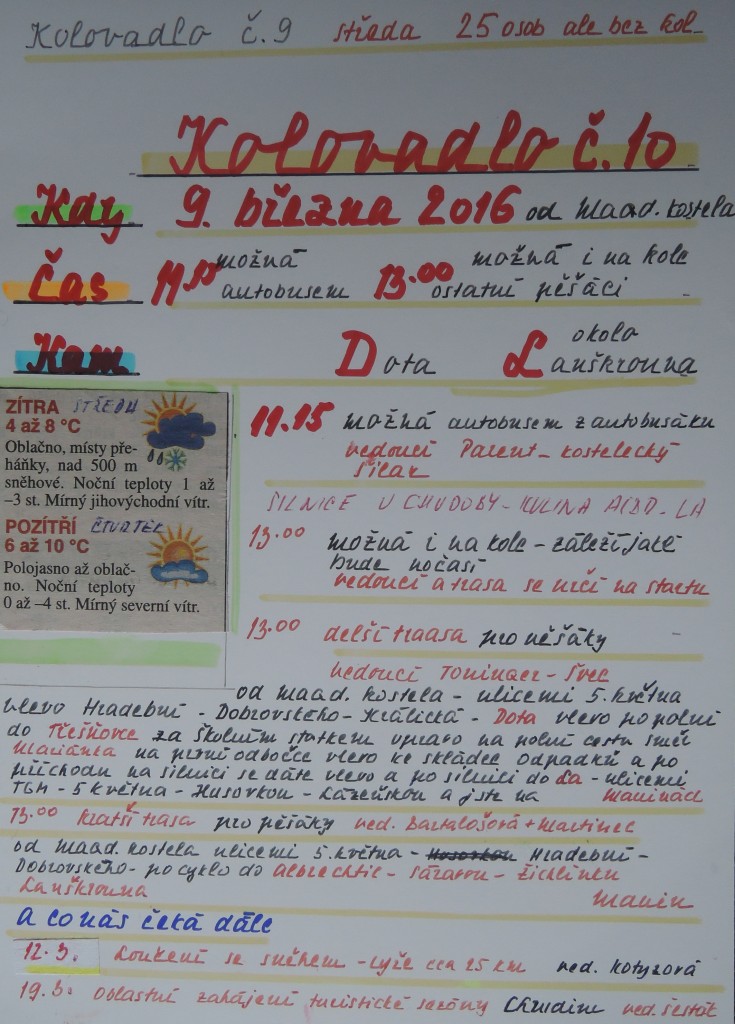 Kolovadlo č.9 středa 25 osob ale bez kol
Kolovadlo č.10
Kdy 9. března 2016 od Maad. kostela
Čas 11.15 možná autobusem 13.00 možná i na kole ostatní pěšáci
Kam Dota okolo Lanškrouna
ZÍTRA STŘEDU
4 až 8 °C
Oblačno, místy pře-
háňky, nad 500 m
sněhové. Noční teploty 1 až
–3 st. Mírný jihovýchodní vítr.
POZÍTŘÍ ČTVRTEK
6 až 10 °C
Polojasno až oblač-
no. Noční teploty
0 až –4 st. Mírný severní vítr.
11.15 možná autobusem z autobusáku
vedoucí Parent - kostelecký
Silar
SILNICE U CHUDOBY - KULINA ALBR - LA
13.00 možná i na kole - záleží jaké
bude počasí
vedoucí a trasa se určí na startu
13.00 delší traasa pro pěšáky
vedoucí - Švec
od Maad. kostela - ulicemi 5. května
vlevo Hradební - Dobrovského - Králická - Dota vlevo po polní
do Třešňovce za školním statkem vpravo na polní cestu směr
Mariánka na první odbočce vlevo ke skládce odpadků a po
příchodu na silnici se dáte vlevo a po silnici do La - ulicemi
TGM - 5 května - Husovkou - Lázeňskou a jste na
13.00 kratší trasa pro pěšáky ved. Bartalošová + Martinec
od Maad. kostela ulicemi 5. května - Husovkou Hradební -
Dobrovského - po cyklo do Albrechtic - Sázavou - Žichlínku
Lanškrouna
A co nás čeká dále
12.3. Loučení se sněhem - lyže cca 25 km ved. Kotyzová
19.3. Oblastní zahájení turistické sezóny Chrudim ved. Šesták